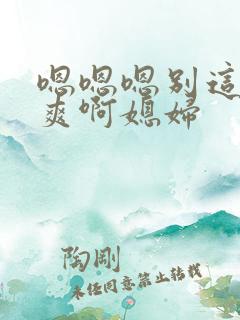 嗯嗯嗯别這
爽啊媳婦
陶剛
未经同意禁止转载